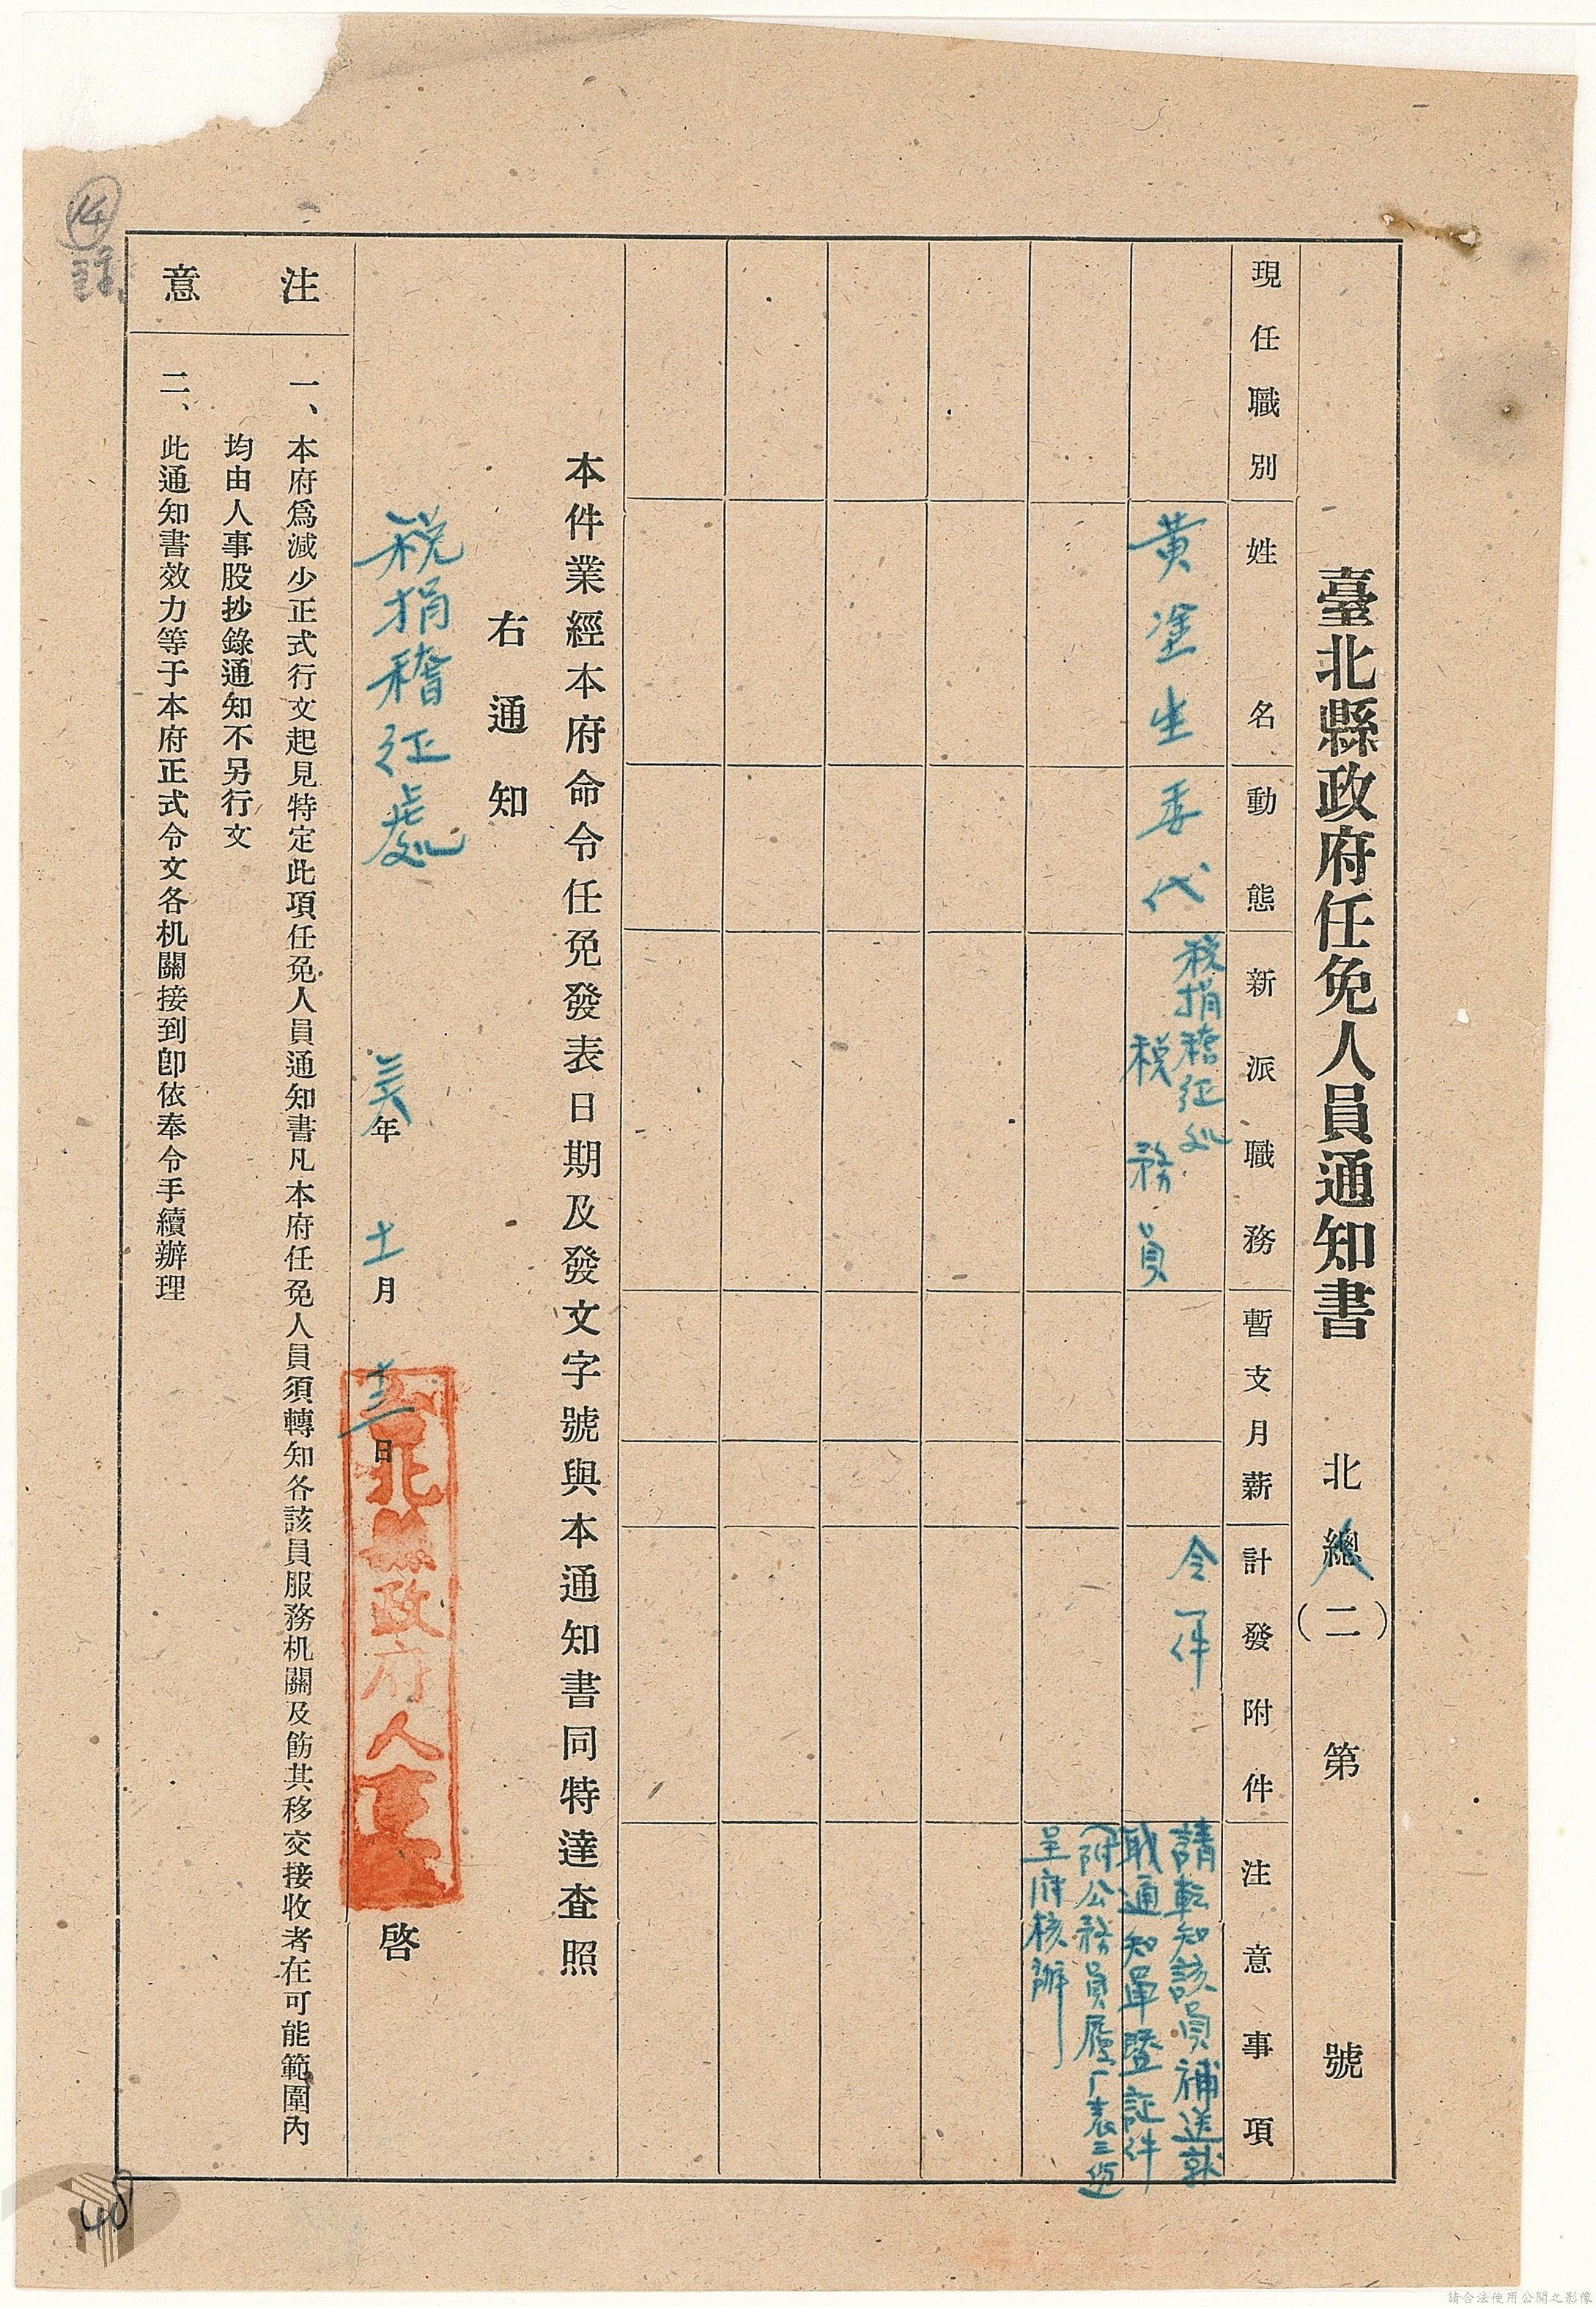 臺北縣政府任免人員通知書 北總人(二)第 號
現任職別 姓名 動態 新派職務 暫支月薪 計發附件 注意事項
黃塗生
委代
稅捐稽征処
稅務員
令一件
請転知該員補送就
職通知單暨証件
(附公務員履厂表三份)
呈府核辦
本件業經本府命令任免發表日期及發文字號與本通知書同特達查照
右通知
稅捐稽征處
年 十一月 十三日
台北縣政府人事室
啓
注意
一、本府爲減少正式行文起見特定此項任免人員通知書凡本府任免人員須轉知各該員服務机關及飭其移交接收者在可能範圍內
均由人事股抄錄通知不另行文
二、此通知書效力等于本府正式令文各机關接到卽依奉令手續辦理
14
48
請合法使用公開之影像